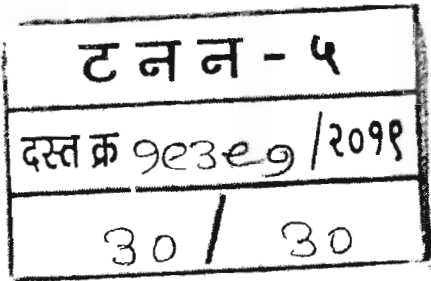 ट न न - ५
दस्त क्र १९३९१ /२०१९
३० / ३०